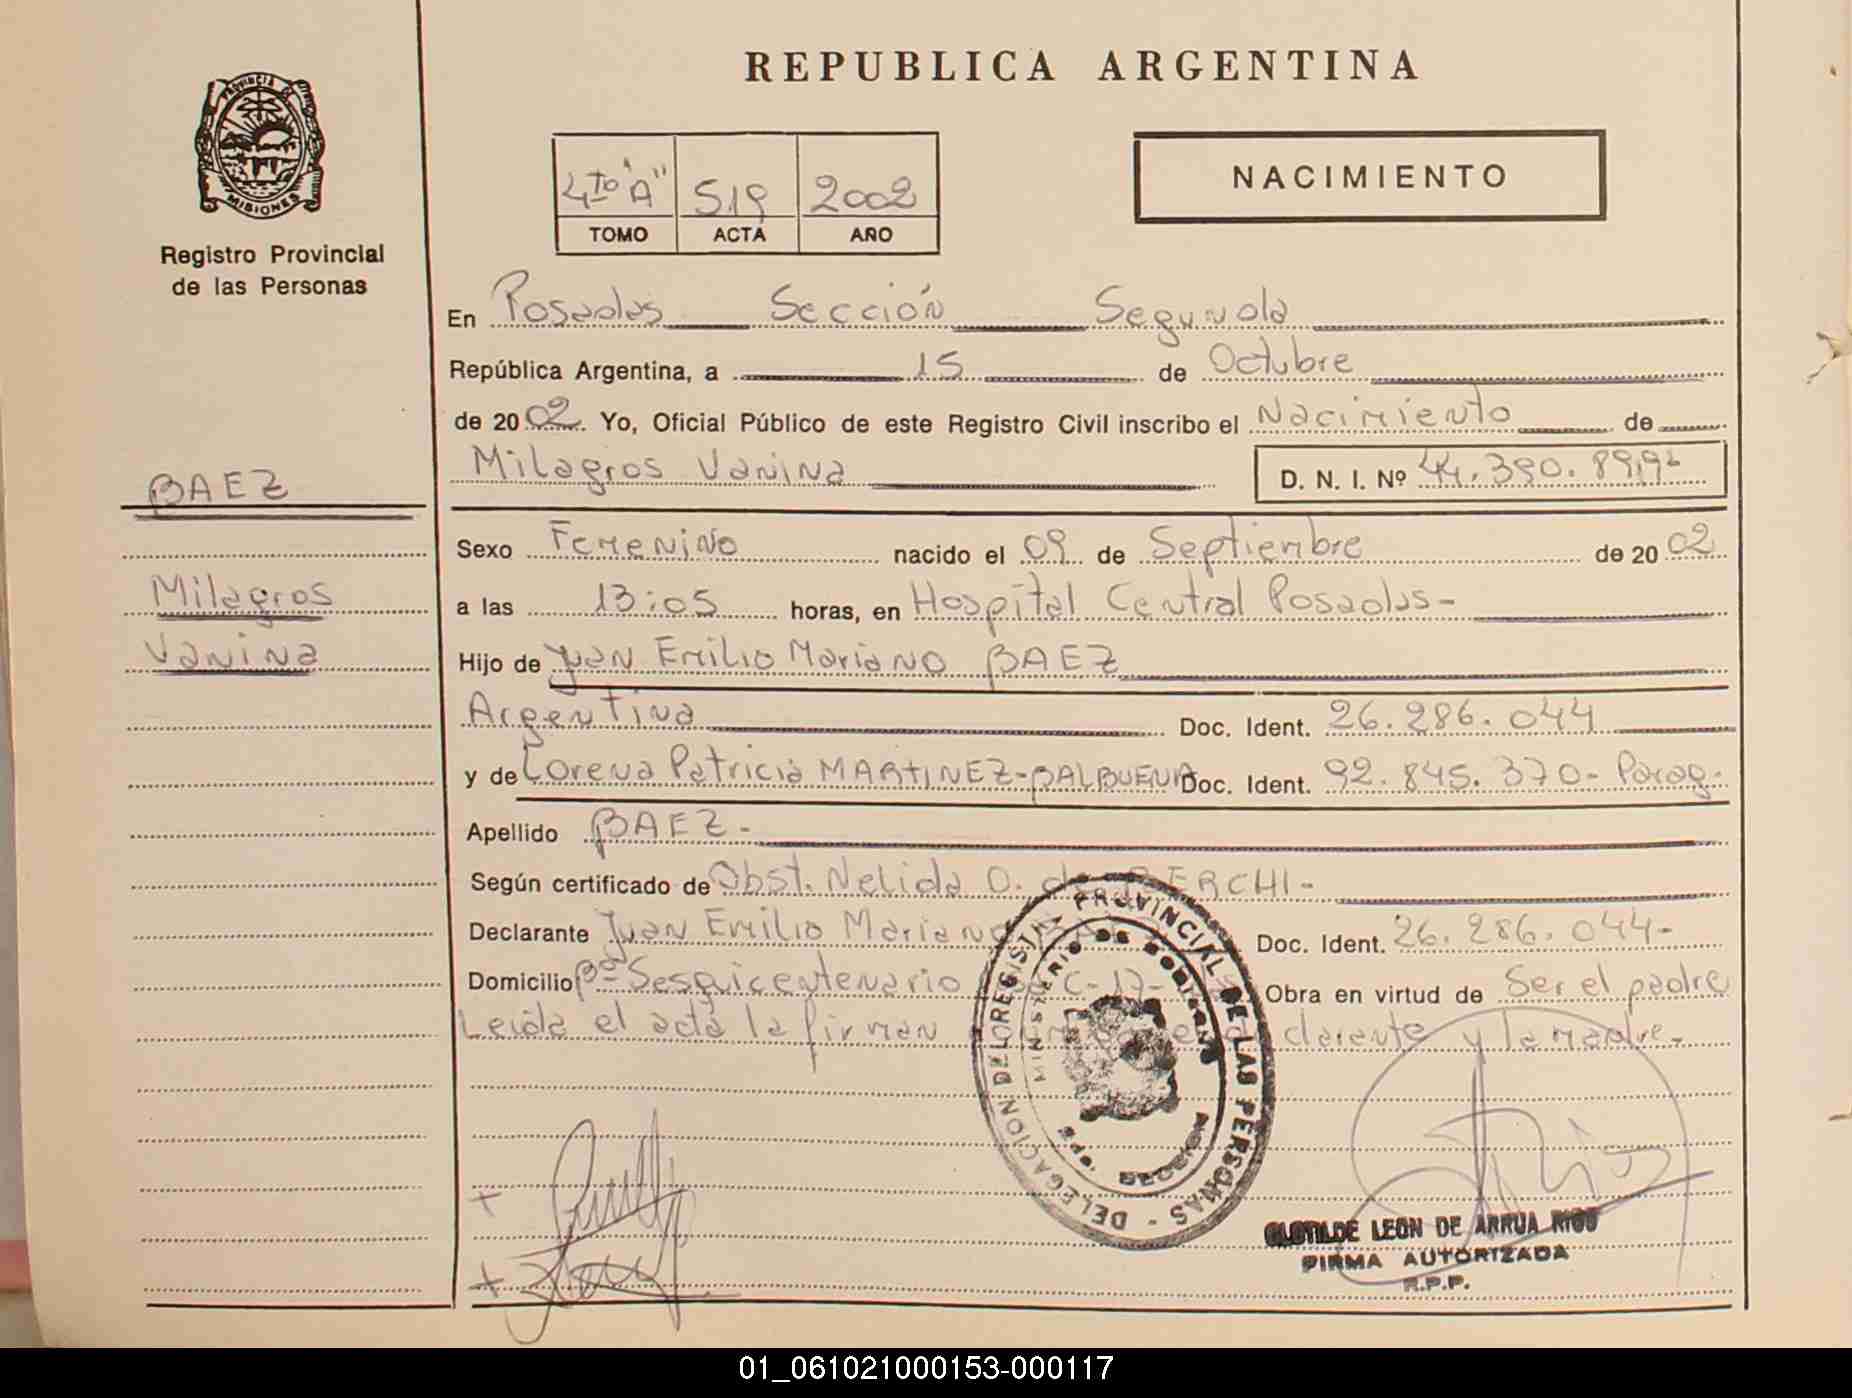 REPUBLICA ARGENTINA
PROVINCIA DE
MISIONES
Registro Provincial
de las Personas
4to "A" 519 2002
TOMO ACTA AÑO
NACIMIENTO
En Posadas Sección Segunda
República Argentina, a 15 de Octubre
de 2002. Yo, Oficial Público de este Registro Civil inscribo el Nacimiento de
Milagros Vanina D. N. I. Nº 44.390.899
BAEZ
Milagros
Vanina
Sexo Femenino nacido el 09 de Septiembre de 2002
a las 13:05 horas, en Hospital Central Posadas-
Hijo de Juan Emilio Mariano BAEZ
Argentina Doc. Ident. 26.286.044
y de Lorena Patricia MARTINEZ-BALBUENA Doc. Ident. 92.845.370- Parag.
Apellido BAEZ-
Según certificado de Obst. Nelida O. de BERCHI-
Declarante Juan Emilio Mariano BAEZ Doc. Ident. 26.286.044-
Domicilio Bº Sesquicentenario C-17- Obra en virtud de Ser el padre
Leida el acta la firman el declarante y la madre.
DELEGACION DEL REGISTRO PROVINCIAL DE LAS PERSONAS -
MINISTERIO DE GOBIERNO
MISIONES
CLOTILDE LEON DE ARRUA RIOS
FIRMA AUTORIZADA
R.P.P.
01_061021000153-000117